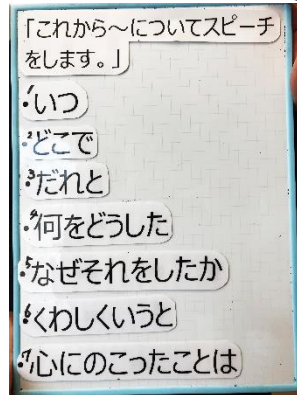 「これから～についてスピーチ
をします。」
・1いつ
・2どこで
・3だれと
・4何をどうした
・5なぜそれをしたか
・6くわしくいうと
・7心にのこったことは